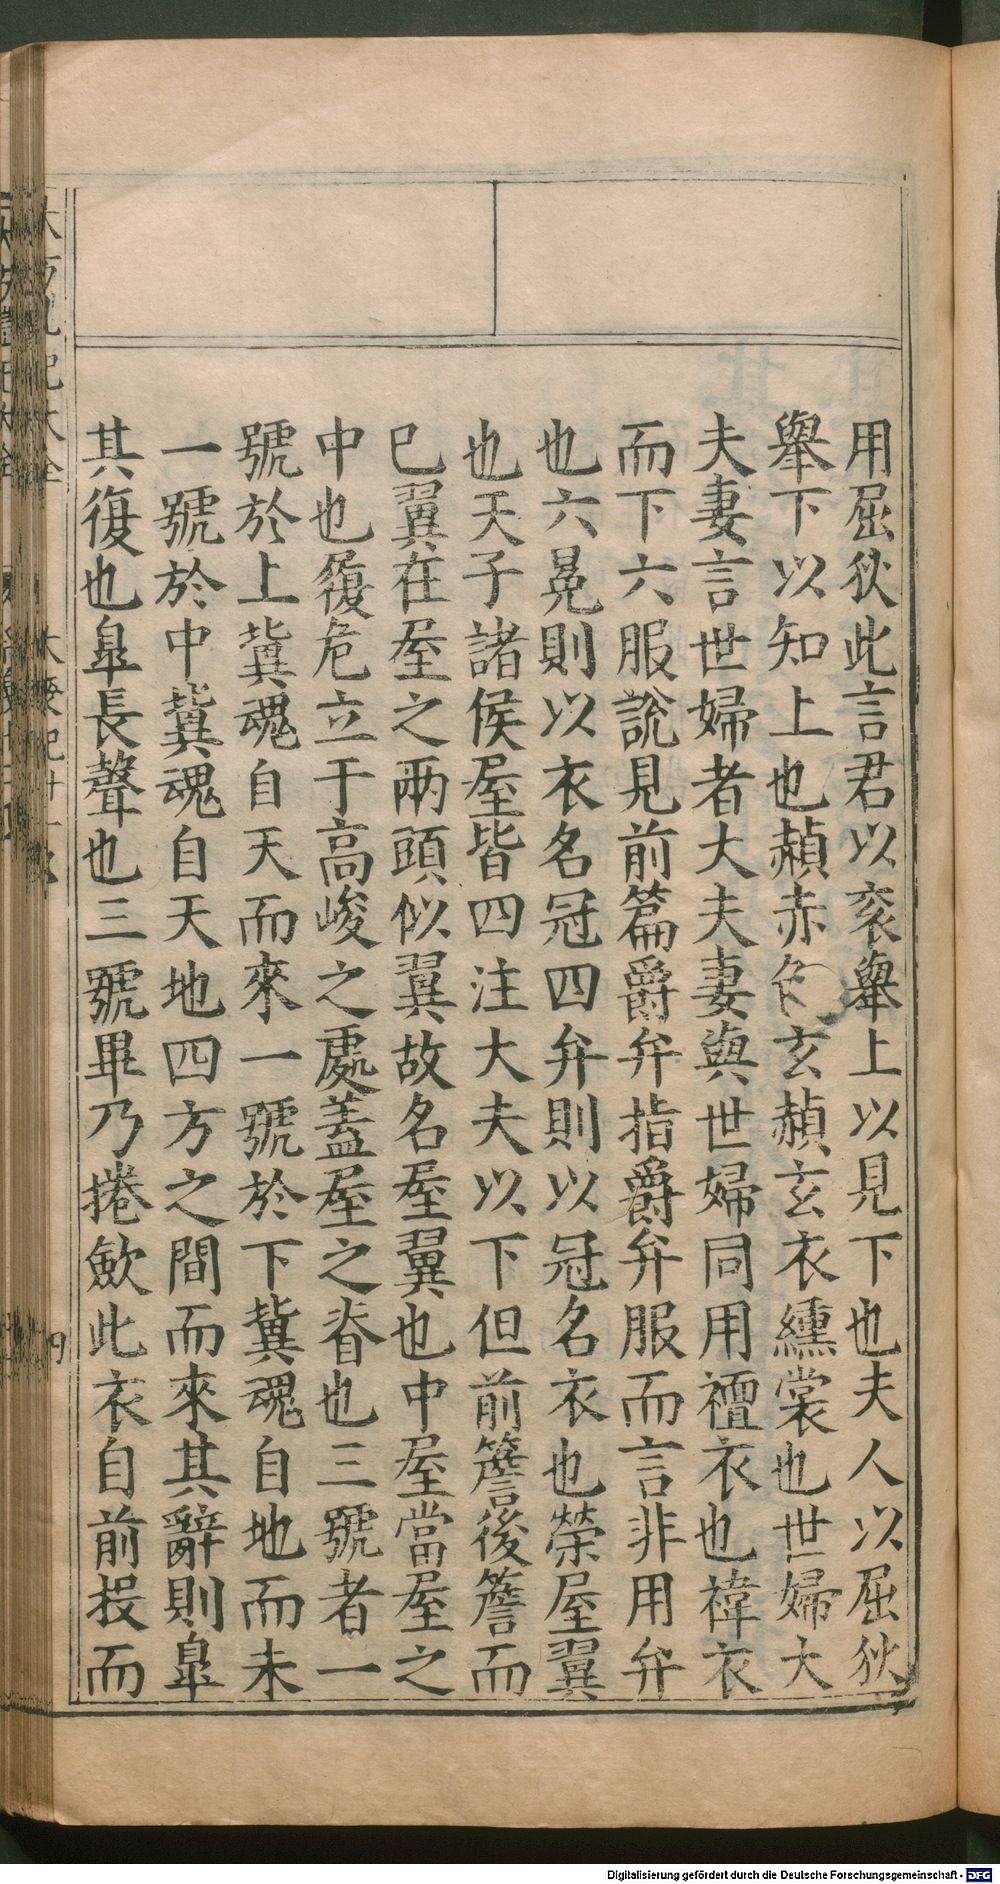 用屈狄此言君以衮舉上以見下也夫人以屈狄
舉下以知上也赬赤色玄赬玄衣纁裳也世婦大
夫妻言世婦者大夫妻與世婦同用襢衣也褘衣
而下六服說見前篇爵弁指爵弁服而言非用弁
也六冕則以衣名冠四弁則以冠名衣也榮屋翼
也天子諸侯屋皆四注大夫以下但前簷後簷而
已翼在屋之兩頭似翼故名屋翼也中屋當屋之
中也履危立于高峻之處蓋屋之脊也三號者一
號於上冀魂自天而來一號於下冀魂自地而未
一號於中冀魂自天地四方之間而來其辭則臯
其復也臯長聲也三號畢乃捲斂此衣自前投而
Digitalisierung gefördert durch die Deutsche Forschungsgemeinschaft - DFG